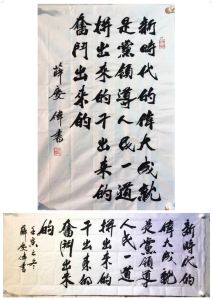 新時代的偉大成就
是黨領導人民一道
拼出來的干出來的
奮鬥出來的
薛愛偉書
新時代的
偉大成就
是黨領導
人民一道
拼出來的
干出來的
奮鬥出來
的
壬寅之冬
薛愛偉書